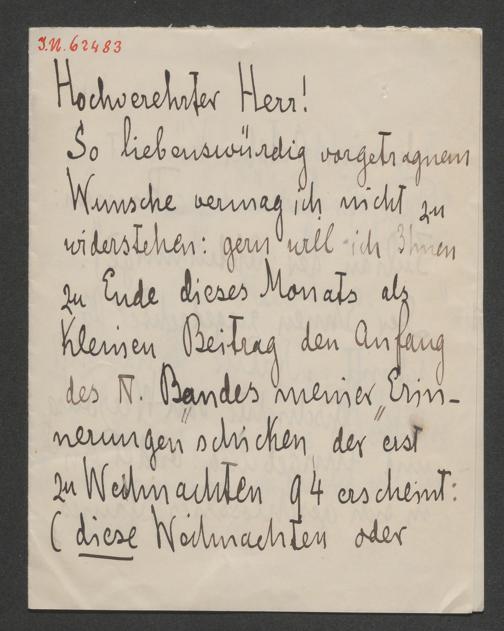 I.N. 62483
Hochverehrter Herr!
So liebenswürdig vorgetragnem
Wunsche vermag ich nicht zu
widerstehen: gern will ich Ihnen
zu Ende dieses Monats als
kleinen Beitrag den Anfang
des IV. Bandes meiner „Erin-
nerungen" schicken, der erst
zu Weihnachten 94 erscheint:
(diese Weihnachten oder